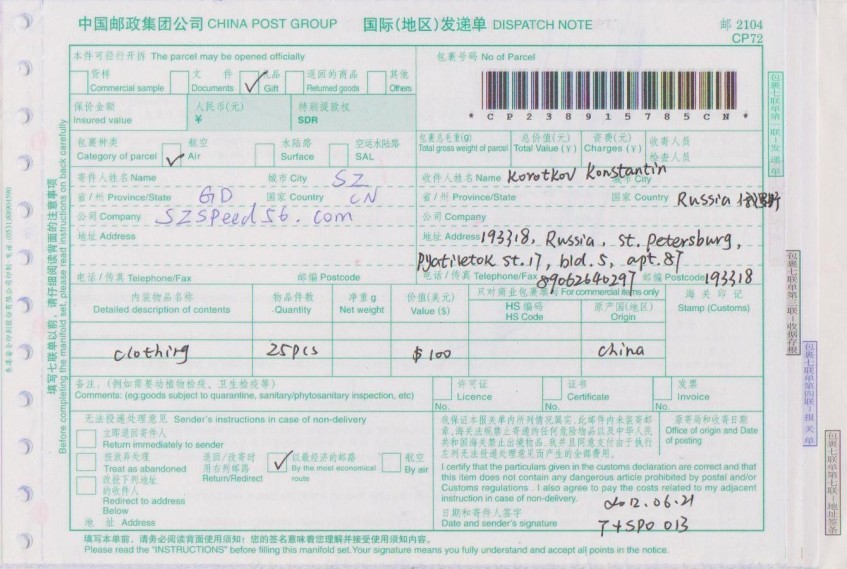 中国邮政集团公司 CHINA POST GROUP 国际(地区)发递单 DISPATCH NOTE 邮 2104
CP72
本件可径行开拆 The parcel may be opened officially
包裹号码 No of Parcel
货样 文 件 礼品 退回的商品 其他
Commercial sample Documents Gift Returned goods Others
* C P 2 3 8 9 1 5 7 8 5 C N *
保价金额 人民币(元) 特别提款权
Insured value ¥ SDR
包裹种类 航空 水陆路 空运水陆路
Category of parcel Air Surface SAL
包裹总毛重(g) 总价值(元) 资费(元) 收寄人员
Total gross weight of parcel Total Value (¥) Charges (¥) 检查人员
寄件人姓名 Name 城市 City SZ
省/州 Province/State GD 国家 Country CN
公司 Company SZSPeed56.com
地址 Address
电话/传真 Telephone/Fax 邮编 Postcode
收件人姓名 Name Korotkov Konstantin 城市 City
省/州 Province/State 国家 Country Russia 俄罗斯
公司 Company
地址 Address 193318, Russia, st. Petersburg,
Pyatiletok st.17, bld.5, apt.87
电话/传真 Telephone/Fax 89062640297 邮编 Postcode 193318
内装物品名称 物品件数 净重 g 价值(美元) 只对商业包裹填写 For commercial items only 海关印记
Detailed description of contents Quantity Net weight Value ($) HS 编码 原产国(地区) Stamp (Customs)
HS Code Origin
clothing 25pcs $100 china
备注:(例如需要动植物检疫、卫生检疫等)
Comments: (eg:goods subject to quarantine, sanitary/phytosanitary inspection, etc)
许可证 证书 发票
Licence Certificate Invoice
No. No. No.
无法投递处理意见 Sender's instructions in case of non-delivery
立即退寄件人
Return immediately to sender
按放弃处理 退回/改寄时 以最经济的邮路 航空
Treat as abandoned 用右列邮路 By the most economical By air
改投下列地址 Return/Redirect route
的收件人
Redirect to address
Below
地 址 Address
我保证本报关单内所列情况属实,此邮件内未装寄邮
章、海关法规禁止寄递的任何危险物品以及中华人民
共和国海关禁止出境物品。我并且同意支付由于执行
左列无法投递处理意见而产生的全部费用。
I certify that the particulars given in the customs declaration are correct and that
this item does not contain any dangerous article prohibited by postal and/or
Customs regulations . I also agree to pay the costs related to my adjacent
instruction in case of non-delivery.
2012.06.21
日期和寄件人签字
Date and sender's signature T4SP0 013
原寄局和收寄日期
Office of origin and Date
of posting
填写本单前,请务必阅读背面使用须知!您的签名意味着您理解并接受使用须知内容。
Please read the "INSTRUCTIONS" before filling this manifold set.Your signature means you fully understand and accept all points in the notice.
填写七联单以前,请仔细阅读背面的注意事项
Before completing the manifold set, please read instructions on back carefully
包裹七联单第一联-发递单
包裹七联单第三联-收据存根
包裹七联单第四联-报关单
包裹七联单第七联-地址签条